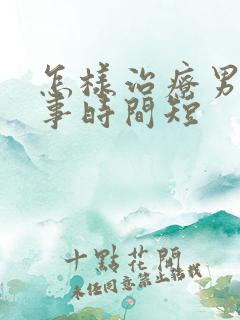 怎樣治療男
事時間短
十點花開
未經同意禁止轉載